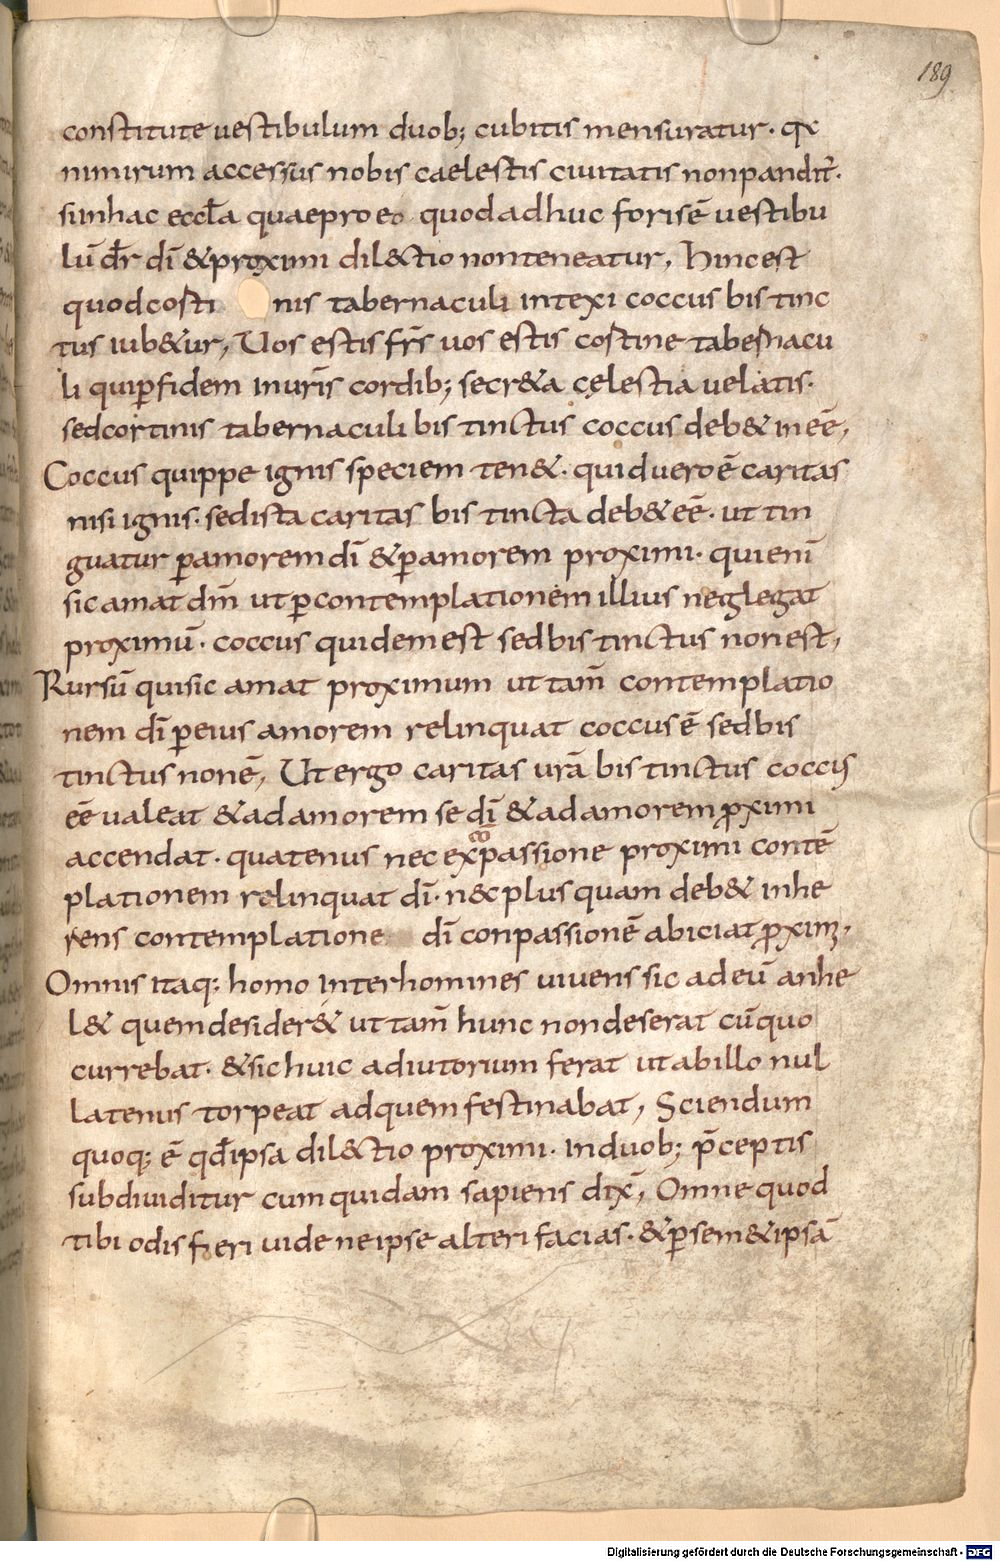 189
constitute uestibulum duob; cubitis mensuratur. qx
nimirum accessus nobis caelestis ciuitatis nonpandit̄.
sinhac eccl̄a quaepro eo quod adhuc foris ē uestibu
lū dr̄ dī &proximi dil&tio nonteneatur, hinc est
quod costi nis tabernaculi intexi coccus bis tinc
tus iub&ur, Uos estis frs̄ uos estis costine tabernacu
li qui ꝑfidem inuris̄ cordib; secr&a cęlestia uelatis.
sedcortinis tabernaculi bis tinctus coccus deb& in eē,
Coccus quippe ignis speciem ten&. quid uero ē caritas
nisi ignis. sedista caritas bis tincta deb& eē. ut tin
guatur ꝑamorem dī &ꝑamorem proximi. quienī
sic amat dm̄ ut ꝑcontemplationem illius neglegat
proximū. coccus quidem est sed bis tinctus non est,
Rursū quisic amat proximum ut tam̄ contemplatio
nem dī ꝑeius amorem relinquat coccus ē sed bis
tinctus non ē, Ut ergo caritas urā bis tinctus coccis
eē ualeat &ad amorem se dī &ad amorem ꝓximi
accendat. quatenus nec ex cō passione proximi contē
plationem relinquat dī. n&c plus quam deb& inhe
rens contemplatione dī conpassionē abiciat ꝓximi.
Omnis itaq; homo interhomines uiuens sic ad eū anhe
l& quem desider& ut tam̄ hunc non deserat cū quo
currebat. &sic huic adiutorium ferat ut abillo nul
latenus torpeat adquem festinabat, Sciendum
quoq; ē qd̄ ipsa dil&tio proximi. induob; p̄ceptis
subdiuiditur cum quidam sapiens dix̄, Omne quod
tibi odis fieri uide ne ipse alteri facias. &ꝑsem&ipsā
Digitalisierung gefördert durch die Deutsche Forschungsgemeinschaft - DFG